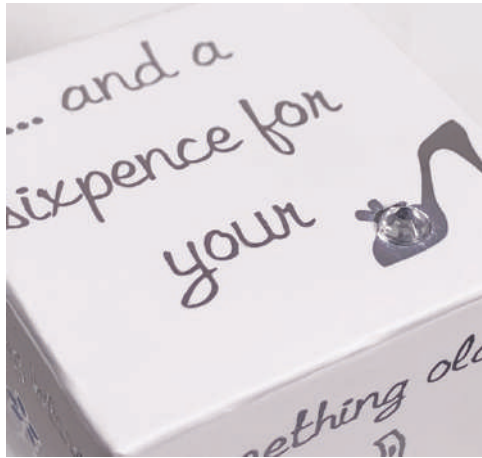 ... and a
sixpence for
your
something old